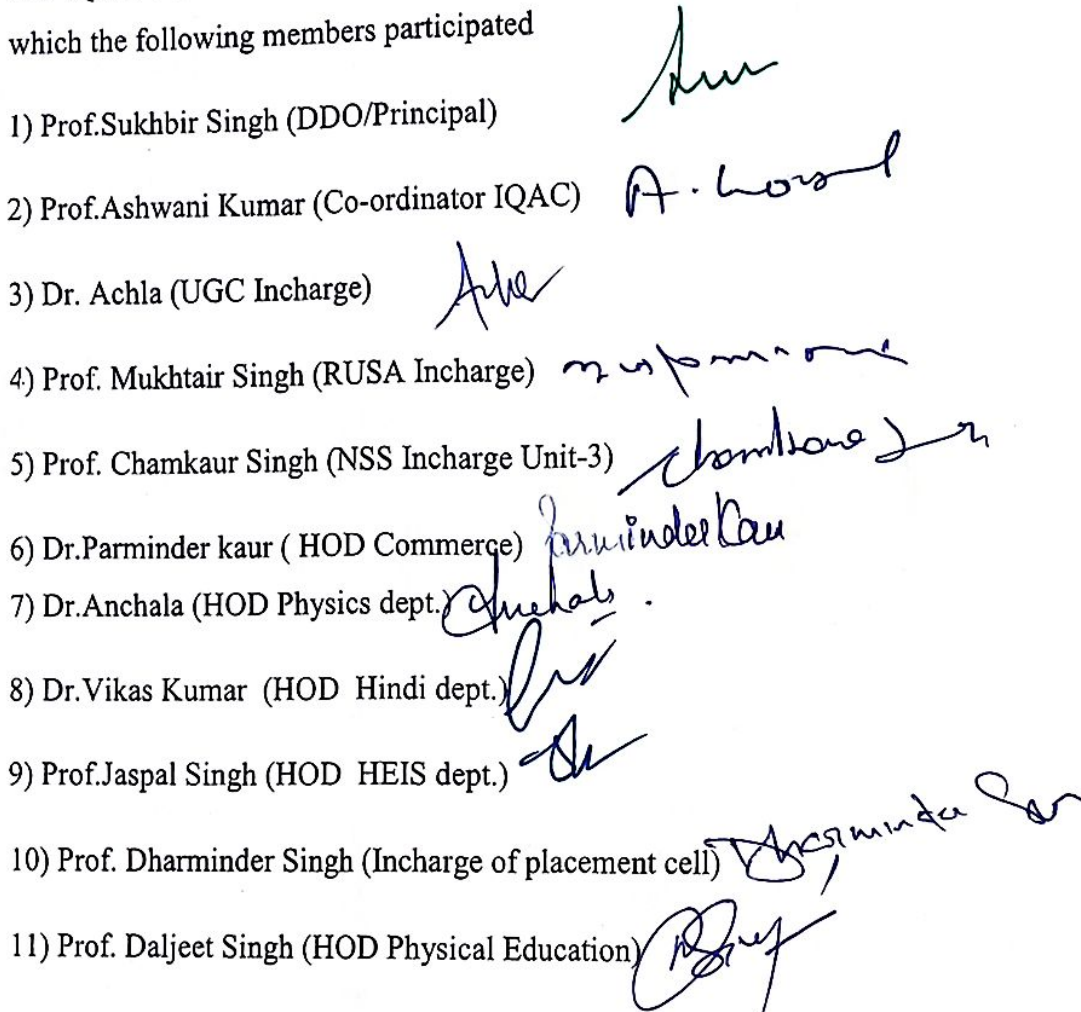 which the following members participated
1) Prof.Sukhbir Singh (DDO/Principal)
2) Prof.Ashwani Kumar (Co-ordinator IQAC)
3) Dr. Achla (UGC Incharge)
4) Prof. Mukhtair Singh (RUSA Incharge)
5) Prof. Chamkaur Singh (NSS Incharge Unit-3)
6) Dr.Parminder kaur ( HOD Commerce) Parminder Kau
7) Dr.Anchala (HOD Physics dept.)
8) Dr.Vikas Kumar (HOD Hindi dept.)
9) Prof.Jaspal Singh (HOD HEIS dept.)
10) Prof. Dharminder Singh (Incharge of placement cell)
11) Prof. Daljeet Singh (HOD Physical Education)